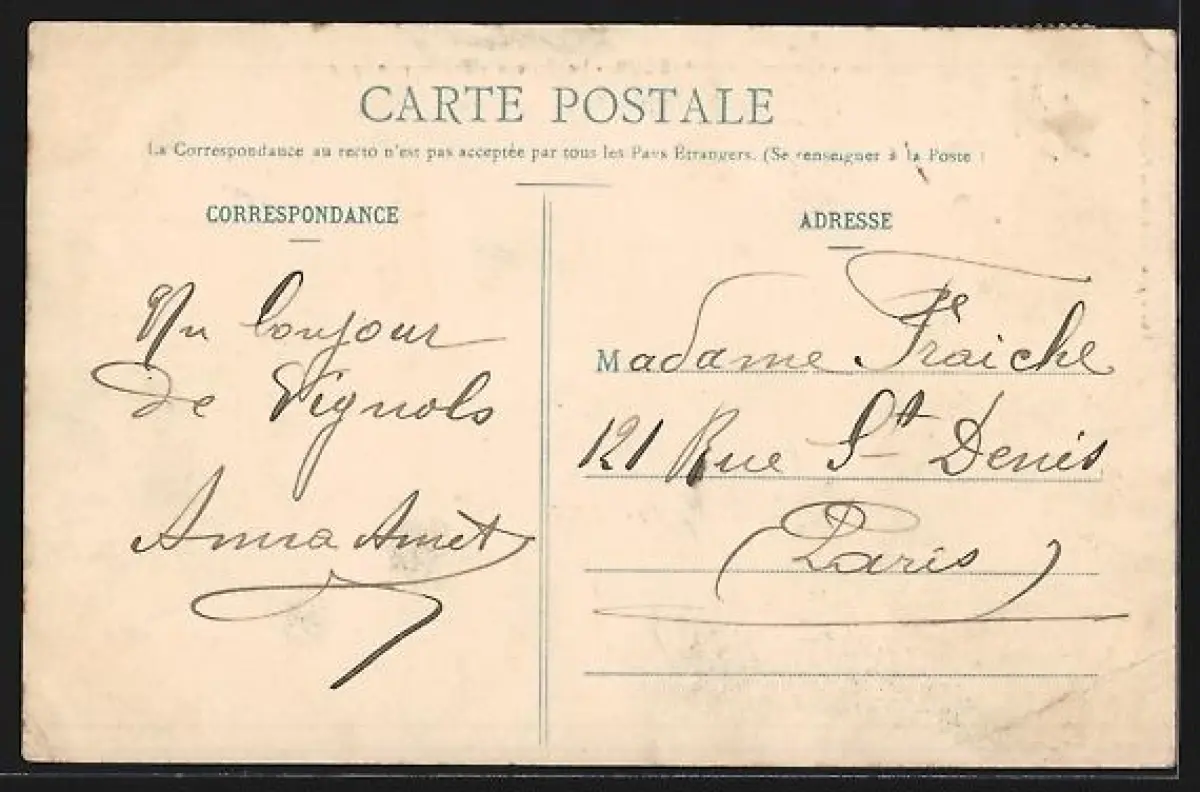 CARTE POSTALE
La Correspondance au recto n'est pas acceptée par tous les Pays Étrangers. (Se renseigner à la Poste)
CORRESPONDANCE
Un bonjour
de Vignols
Anna Amet
ADRESSE
Madame Fraiche
121 Rue St Denis
(Paris)